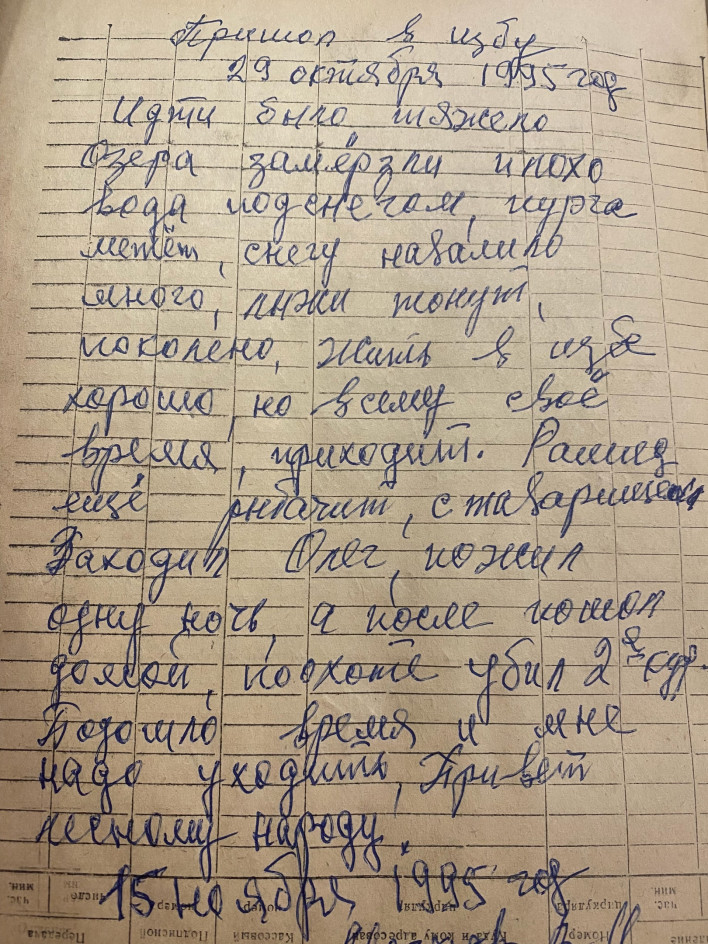 Пришол в избу
29 октября 1995 год
Идти было тяжело
Озера замёрзли плохо
вода под снегам, пурга
метёт, снегу навалило
много, лыжи тонут,
поколено, жить в избе
хорошо, но всему своё
время, приходит. Рашид
ещё рыбачит, с таварищем
Заходил Олег, пожил
одну ночь, а после пошол
домой, по охоте убил 2х
Подошло время и мне
надо уходить, Привет
лесному народу.
15 ноября 1995 год
час.
мин.
число
номер
номер
циркуляра
час.
мин.
Передача
Подписной
Кассовый
Куда и кому адресован
Номер